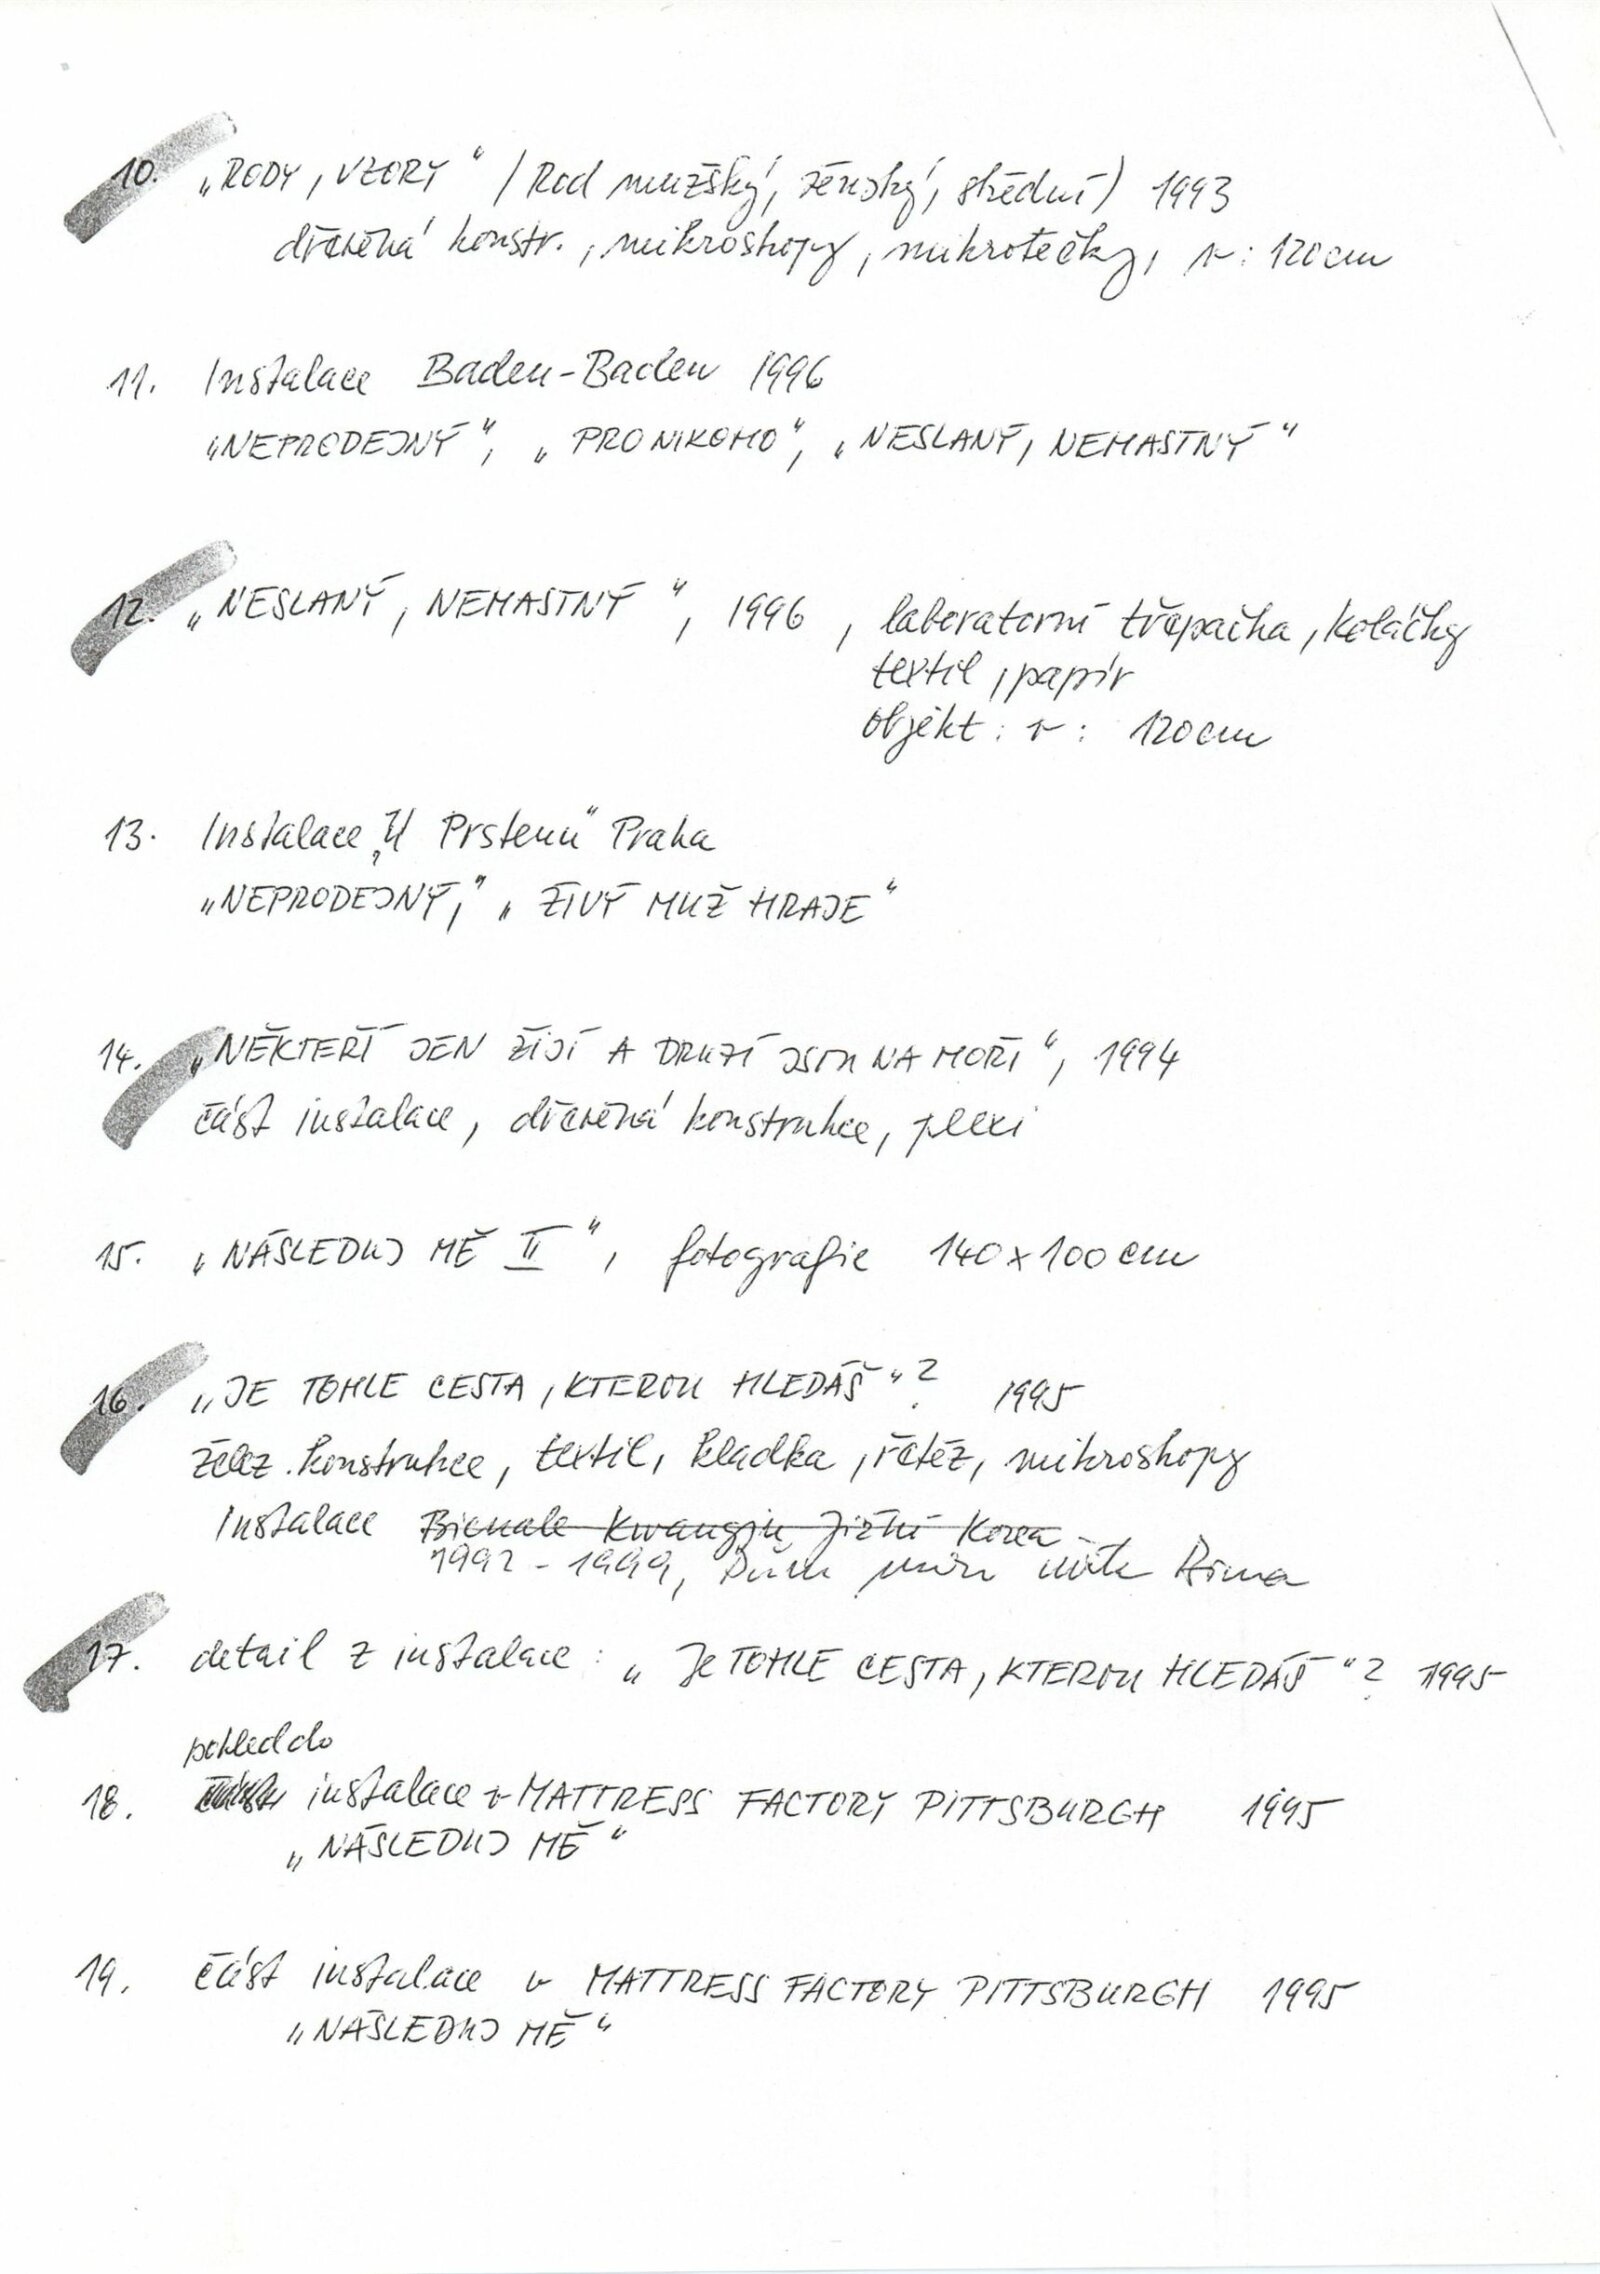 10. „RODY, VZORY“ /Rod mužský, ženský, střední) 1993
dřevěná konstr., mikroskopy, mikrotečky, v: 120cm
11. Instalace Baden-Baden 1996
„NEPRODEJNÝ“, „PRO NIKOHO“, „NESLANÝ, NEMASTNÝ“
12. „NESLANÝ, NEMASTNÝ“, 1996, laboratorní třepačka, koláčky
textil, papír
objekt: v: 120cm
13. Instalace „U Prstenu“ Praha
„NEPRODEJNÝ,“ „ŽIVÝ MUŽ HRAJE“
14. „NĚKTEŘÍ JEN ŽIJÍ A DRUZÍ JSOU NA MOŘI“, 1994
část instalace, dřevěná konstrukce, plexi
15. „NÁSLEDUJ MĚ II“, fotografie 140x100cm
16. „JE TOHLE CESTA, KTEROU HLEDÁŠ“? 1995
želez. konstrukce, textil, kladka, řetěz, mikroskopy
Instalace Bienale Kwangju Jižní Korea
1992-1999, Dům umění
17. detail z instalace: „Je TOHLE CESTA, KTEROU HLEDÁŠ“? 1995
pohled do
18. instalace v MATTRESS FACTORY PITTSBURGH 1995
„NÁSLEDUJ MĚ“
19. část instalace v MATTRESS FACTORY PITTSBURGH 1995
„NÁSLEDUJ MĚ“